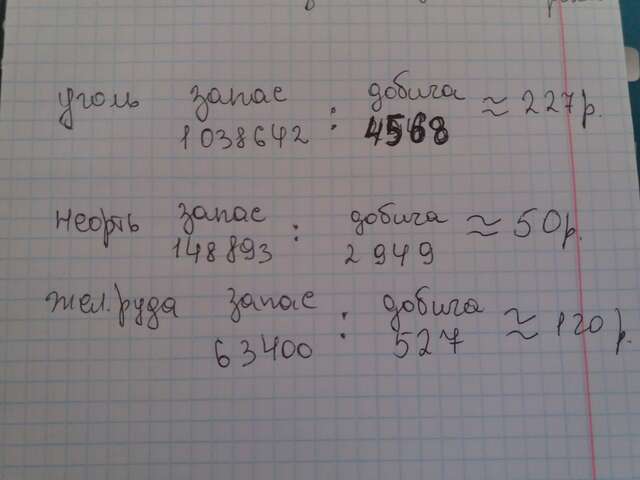 уголь запас : добича ≈ 227р.
1038642 4568
нефть запас : добича ≈ 50р.
148893 2949
жел.руда запас : добича ≈ 120р.
63400 527